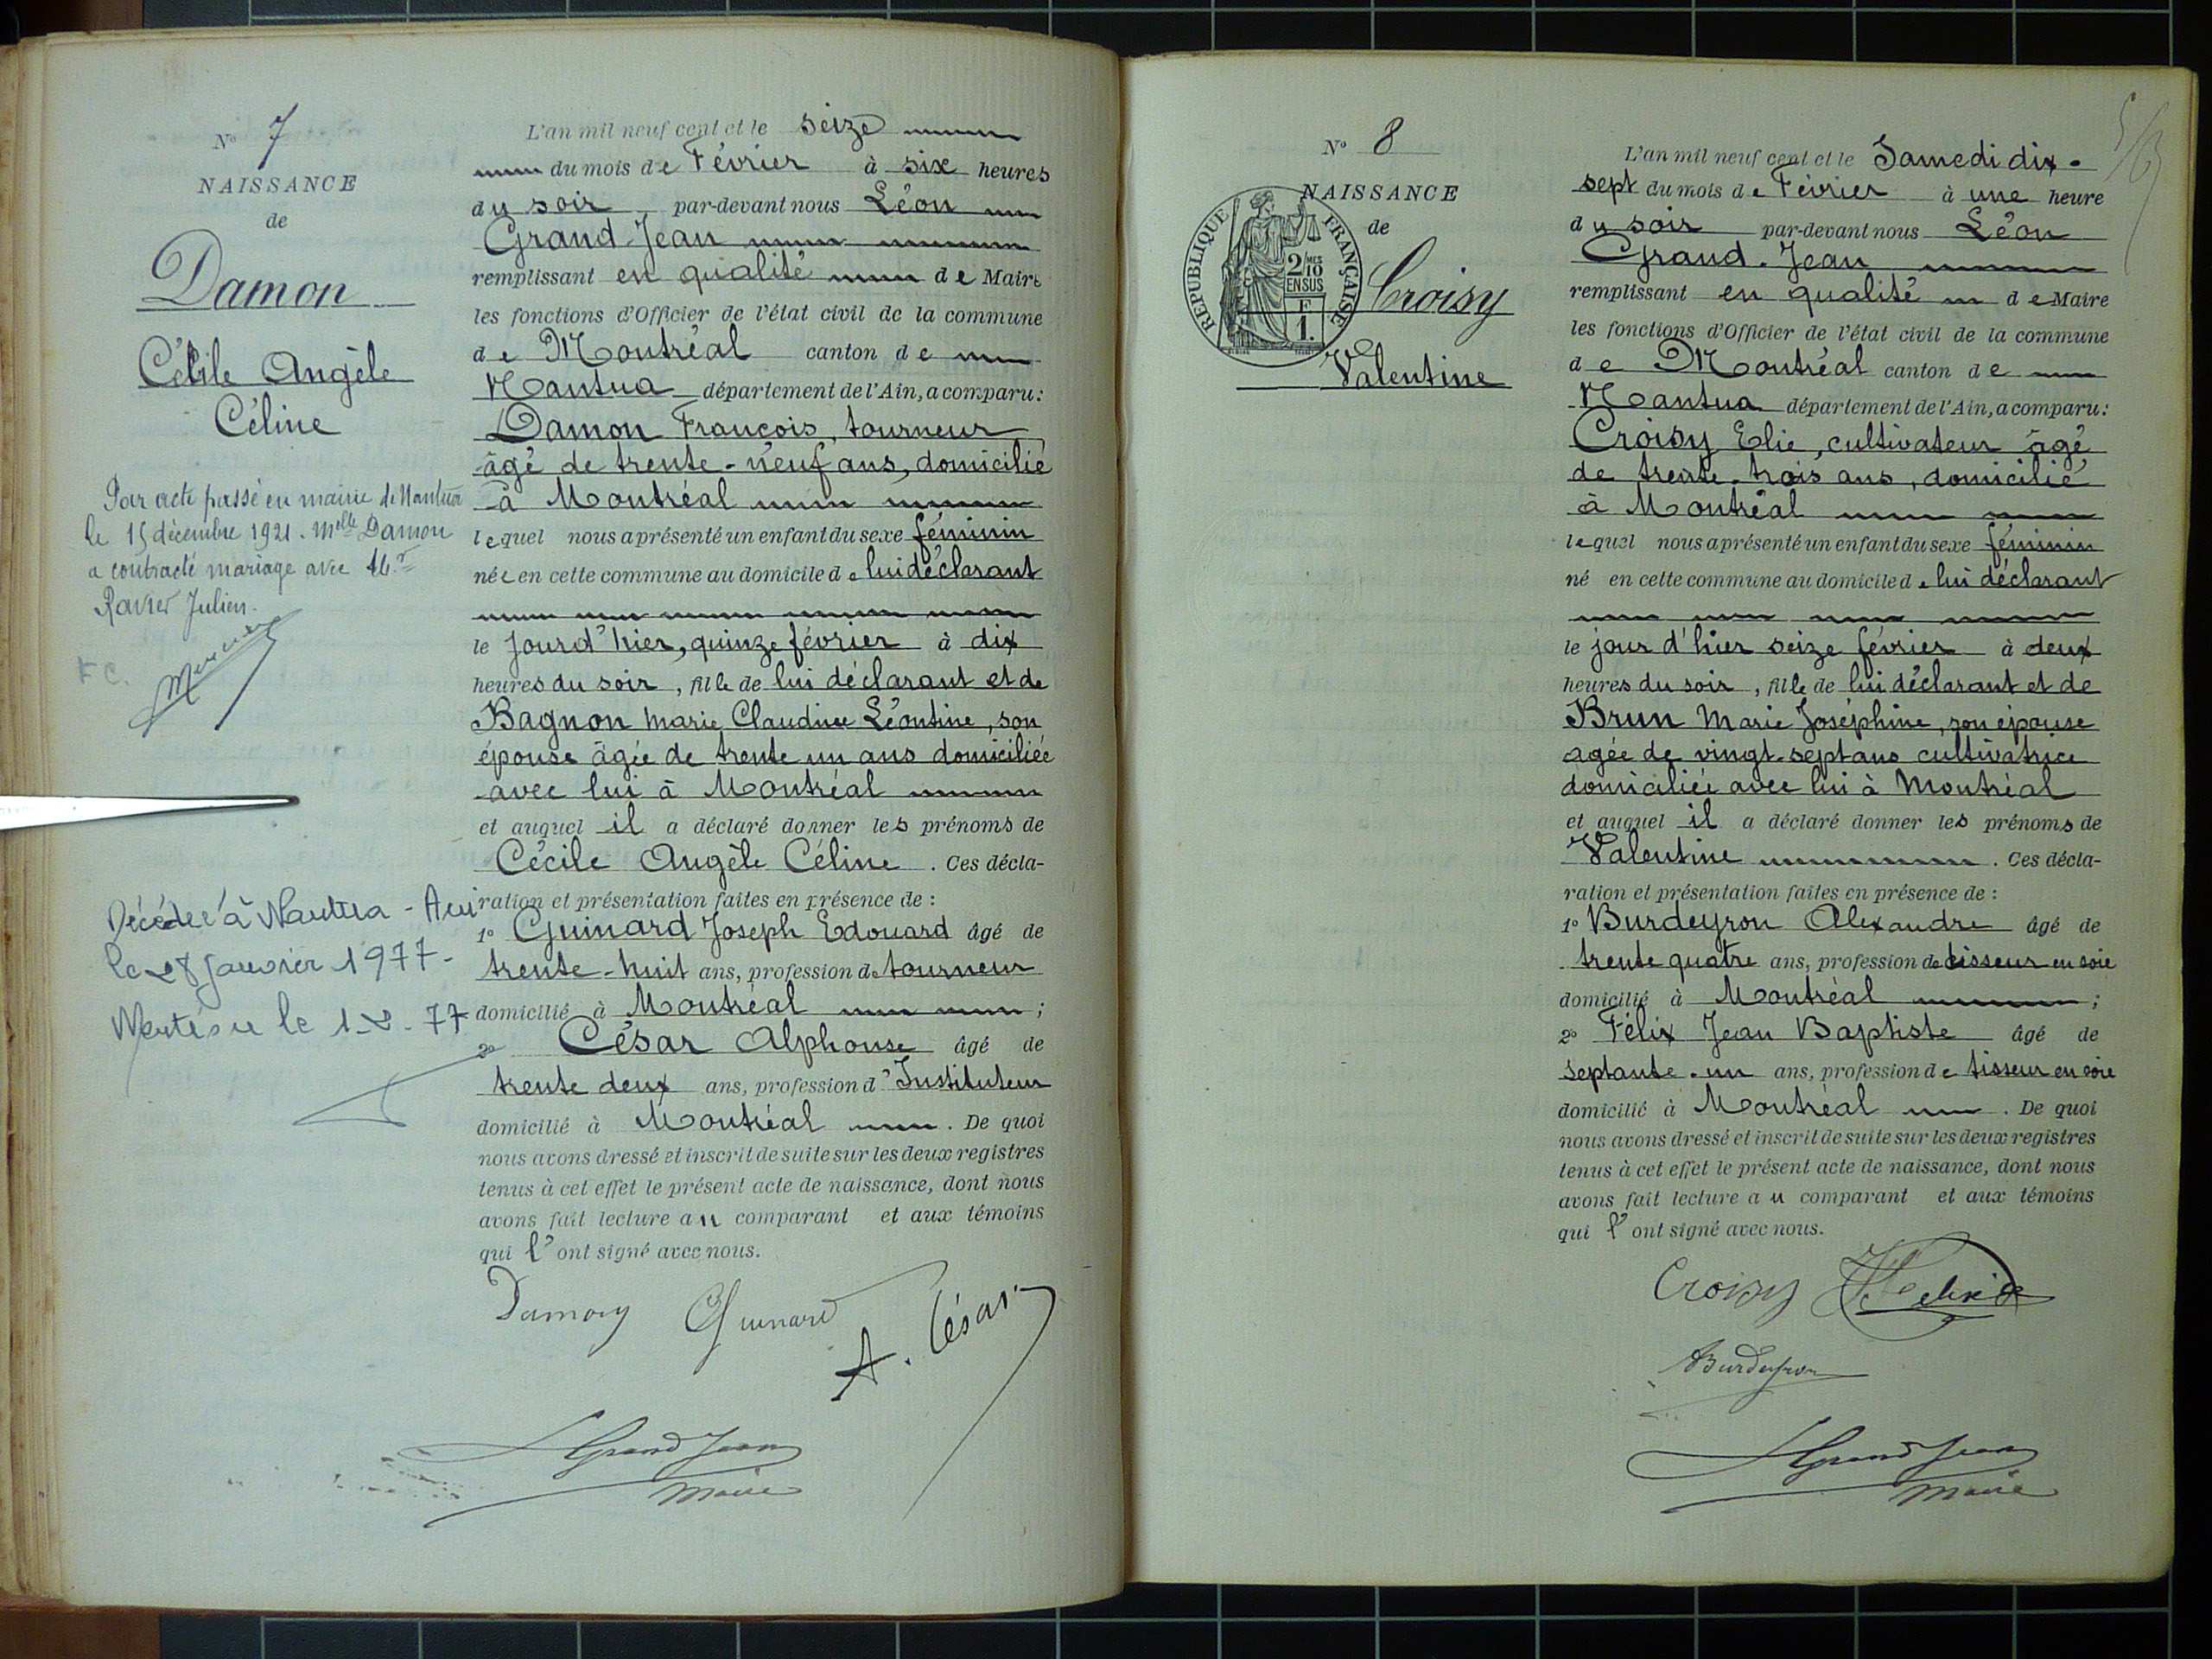 N° 7
NAISSANCE
de
Damon
Cécile Angèle
Céline
Par acte passé en mairie de Nantua
le 15 décembre 1921. Melle Damon
a contracté mariage avec Mr
Ravier Julien.
F C.
Décédée à Nantua - Ain
le 28 janvier 1977-
le 1-2-77
L'an mil neuf cent et le seize
du mois de Février à six heures
du soir par-devant nous Léon
Grand-Jean
remplissant en qualité de Maire
les fonctions d'Officier de l'état civil de la commune
de Montréal canton de
Nantua département de l'Ain, a comparu:
Damon François, tourneur
âgé de trente-neuf ans, domicilié
à Montréal
lequel nous a présenté un enfant du sexe féminin
née en cette commune au domicile de lui déclarant
le jourd'hier, quinze février à dix
heures du soir, fille de lui déclarant et de
Bagnon Marie Claudine Léontine, son
épouse âgée de trente un ans domiciliée
avec lui à Montréal
et auquel il a déclaré donner les prénoms de
Cécile Angèle Céline. Ces décla-
ration et présentation faites en présence de :
1° Guinard Joseph Edouard âgé de
trente-huit ans, profession de tourneur
domicilié à Montréal ;
2° César Alphonse âgé de
trente deux ans, profession d'Instituteur
domicilié à Montréal. De quoi
nous avons dressé et inscrit de suite sur les deux registres
tenus à cet effet le présent acte de naissance, dont nous
avons fait lecture au comparant et aux témoins
qui l'ont signé avec nous.
Damon Guinard A. César
LGrand Jean
Maire
N° 8
NAISSANCE
de
REPUBLIQUE FRANÇAISE
2/10 MES
EN SUS
F
1.
Croisy
Valentine
L'an mil neuf cent et le Samedi dix-
sept du mois de Février à une heure
du soir par-devant nous Léon
Grand-Jean
remplissant en qualité de Maire
les fonctions d'Officier de l'état civil de la commune
de Montréal canton de
Nantua département de l'Ain, a comparu:
Croisy Elie, cultivateur âgé
de trente-trois ans, domicilié
à Montréal
lequel nous a présenté un enfant du sexe féminin
né en cette commune au domicile de lui déclarant
le jour d'hier seize février à deux
heures du soir, fille de lui déclarant et de
Brun Marie Joséphine, son épouse
agée de vingt-sept ans cultivatrice
domiciliée avec lui à Montréal
et auquel il a déclaré donner les prénoms de
Valentine. Ces décla-
ration et présentation faites en présence de :
1° Burdeyron Alexandre âgé de
trente quatre ans, profession de tisseur en soie
domicilié à Montréal ;
2° Félix Jean Baptiste âgé de
septante-un ans, profession de tisseur en soie
domicilié à Montréal. De quoi
nous avons dressé et inscrit de suite sur les deux registres
tenus à cet effet le présent acte de naissance, dont nous
avons fait lecture au comparant et aux témoins
qui l'ont signé avec nous.
Croisy Félix
Burdeyron
LGrand Jean
Maire